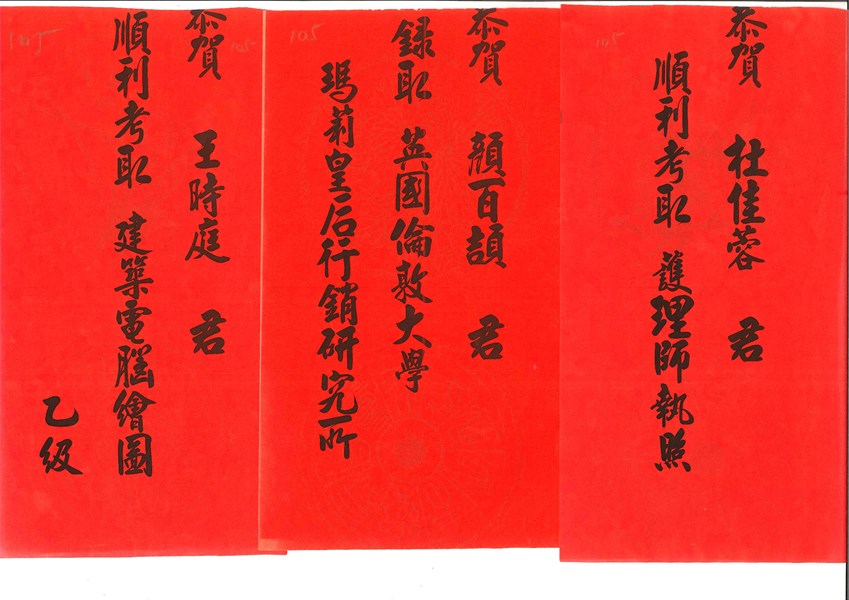 105
恭賀 杜佳蓉 君
順利考取 護理師執照
105
恭賀 顏百頡 君
錄取 英國倫敦大學
瑪莉皇后行銷研究所
105
105
恭賀 王時庭 君
順利考取 建築電腦繪圖
乙級